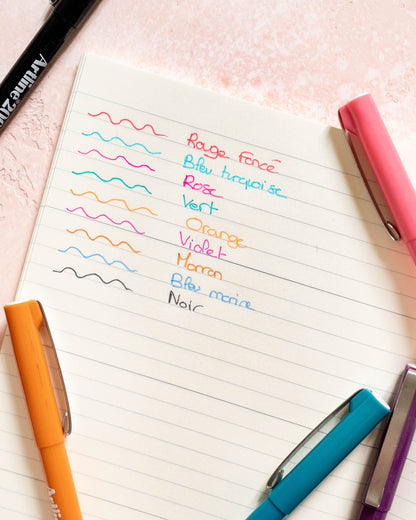 Artline 200
Rouge Foncé
Bleu turquoise
Rose
Vert
Orange
Violet
Marron
Bleu marine
Noir